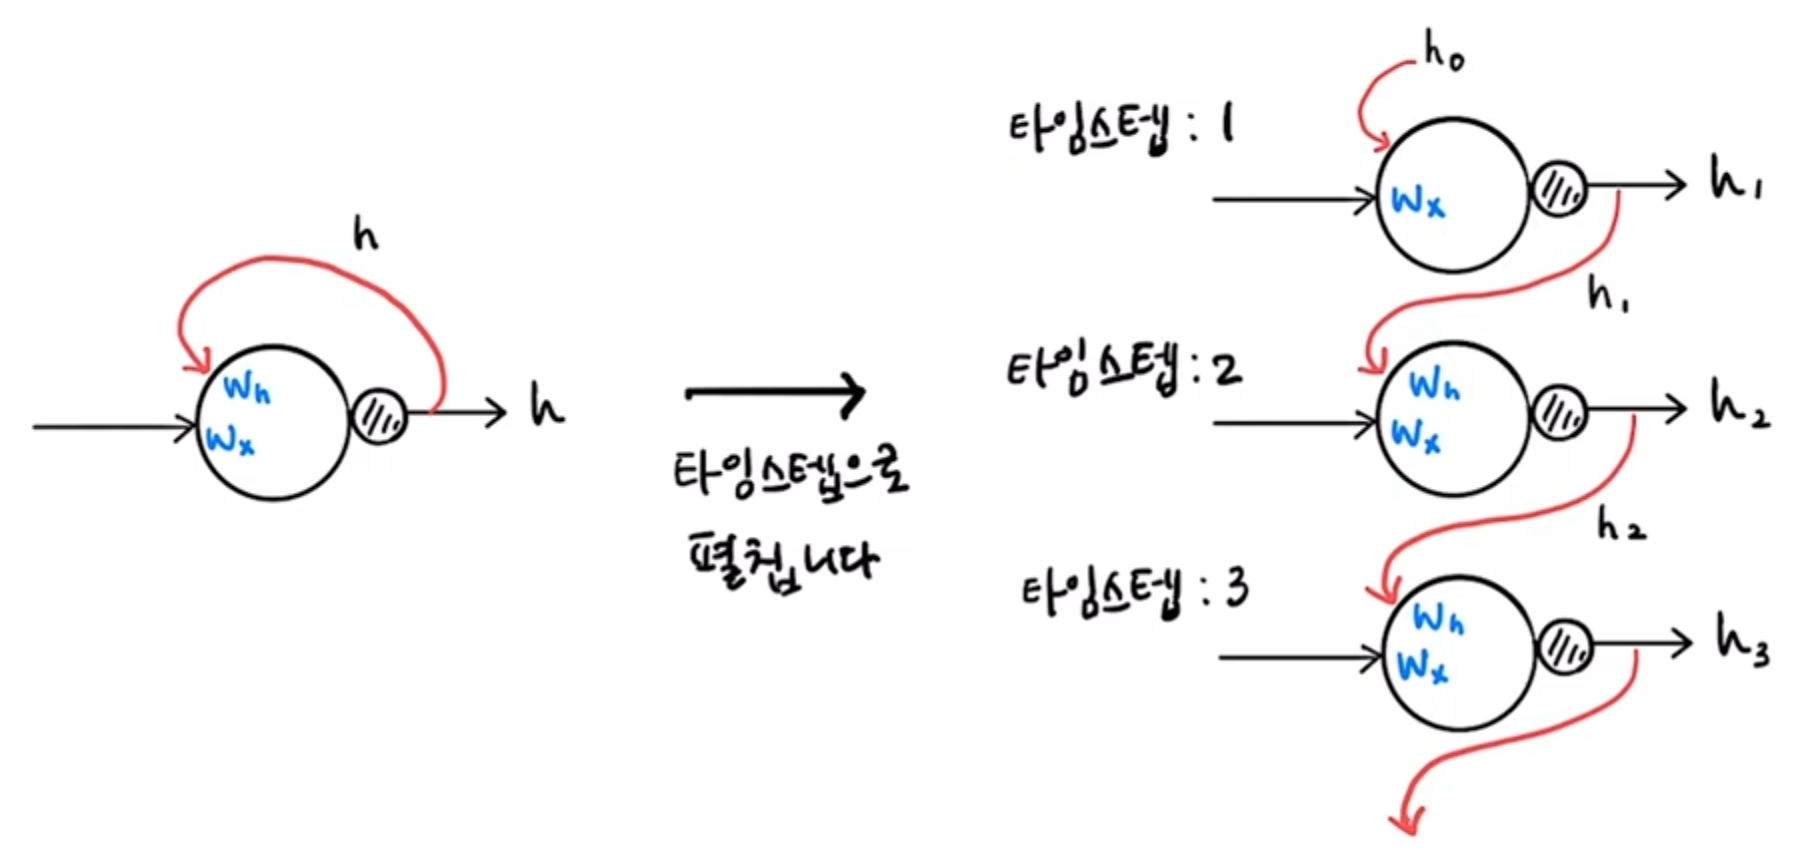 h
Wh
Wx
h
타임스텝으로
펼칩니다
h₀
타임스텝 : 1
Wx
h₁
h₁
타임스텝 : 2
Wh
Wx
h₂
h₂
타임스텝 : 3
Wh
Wx
h₃